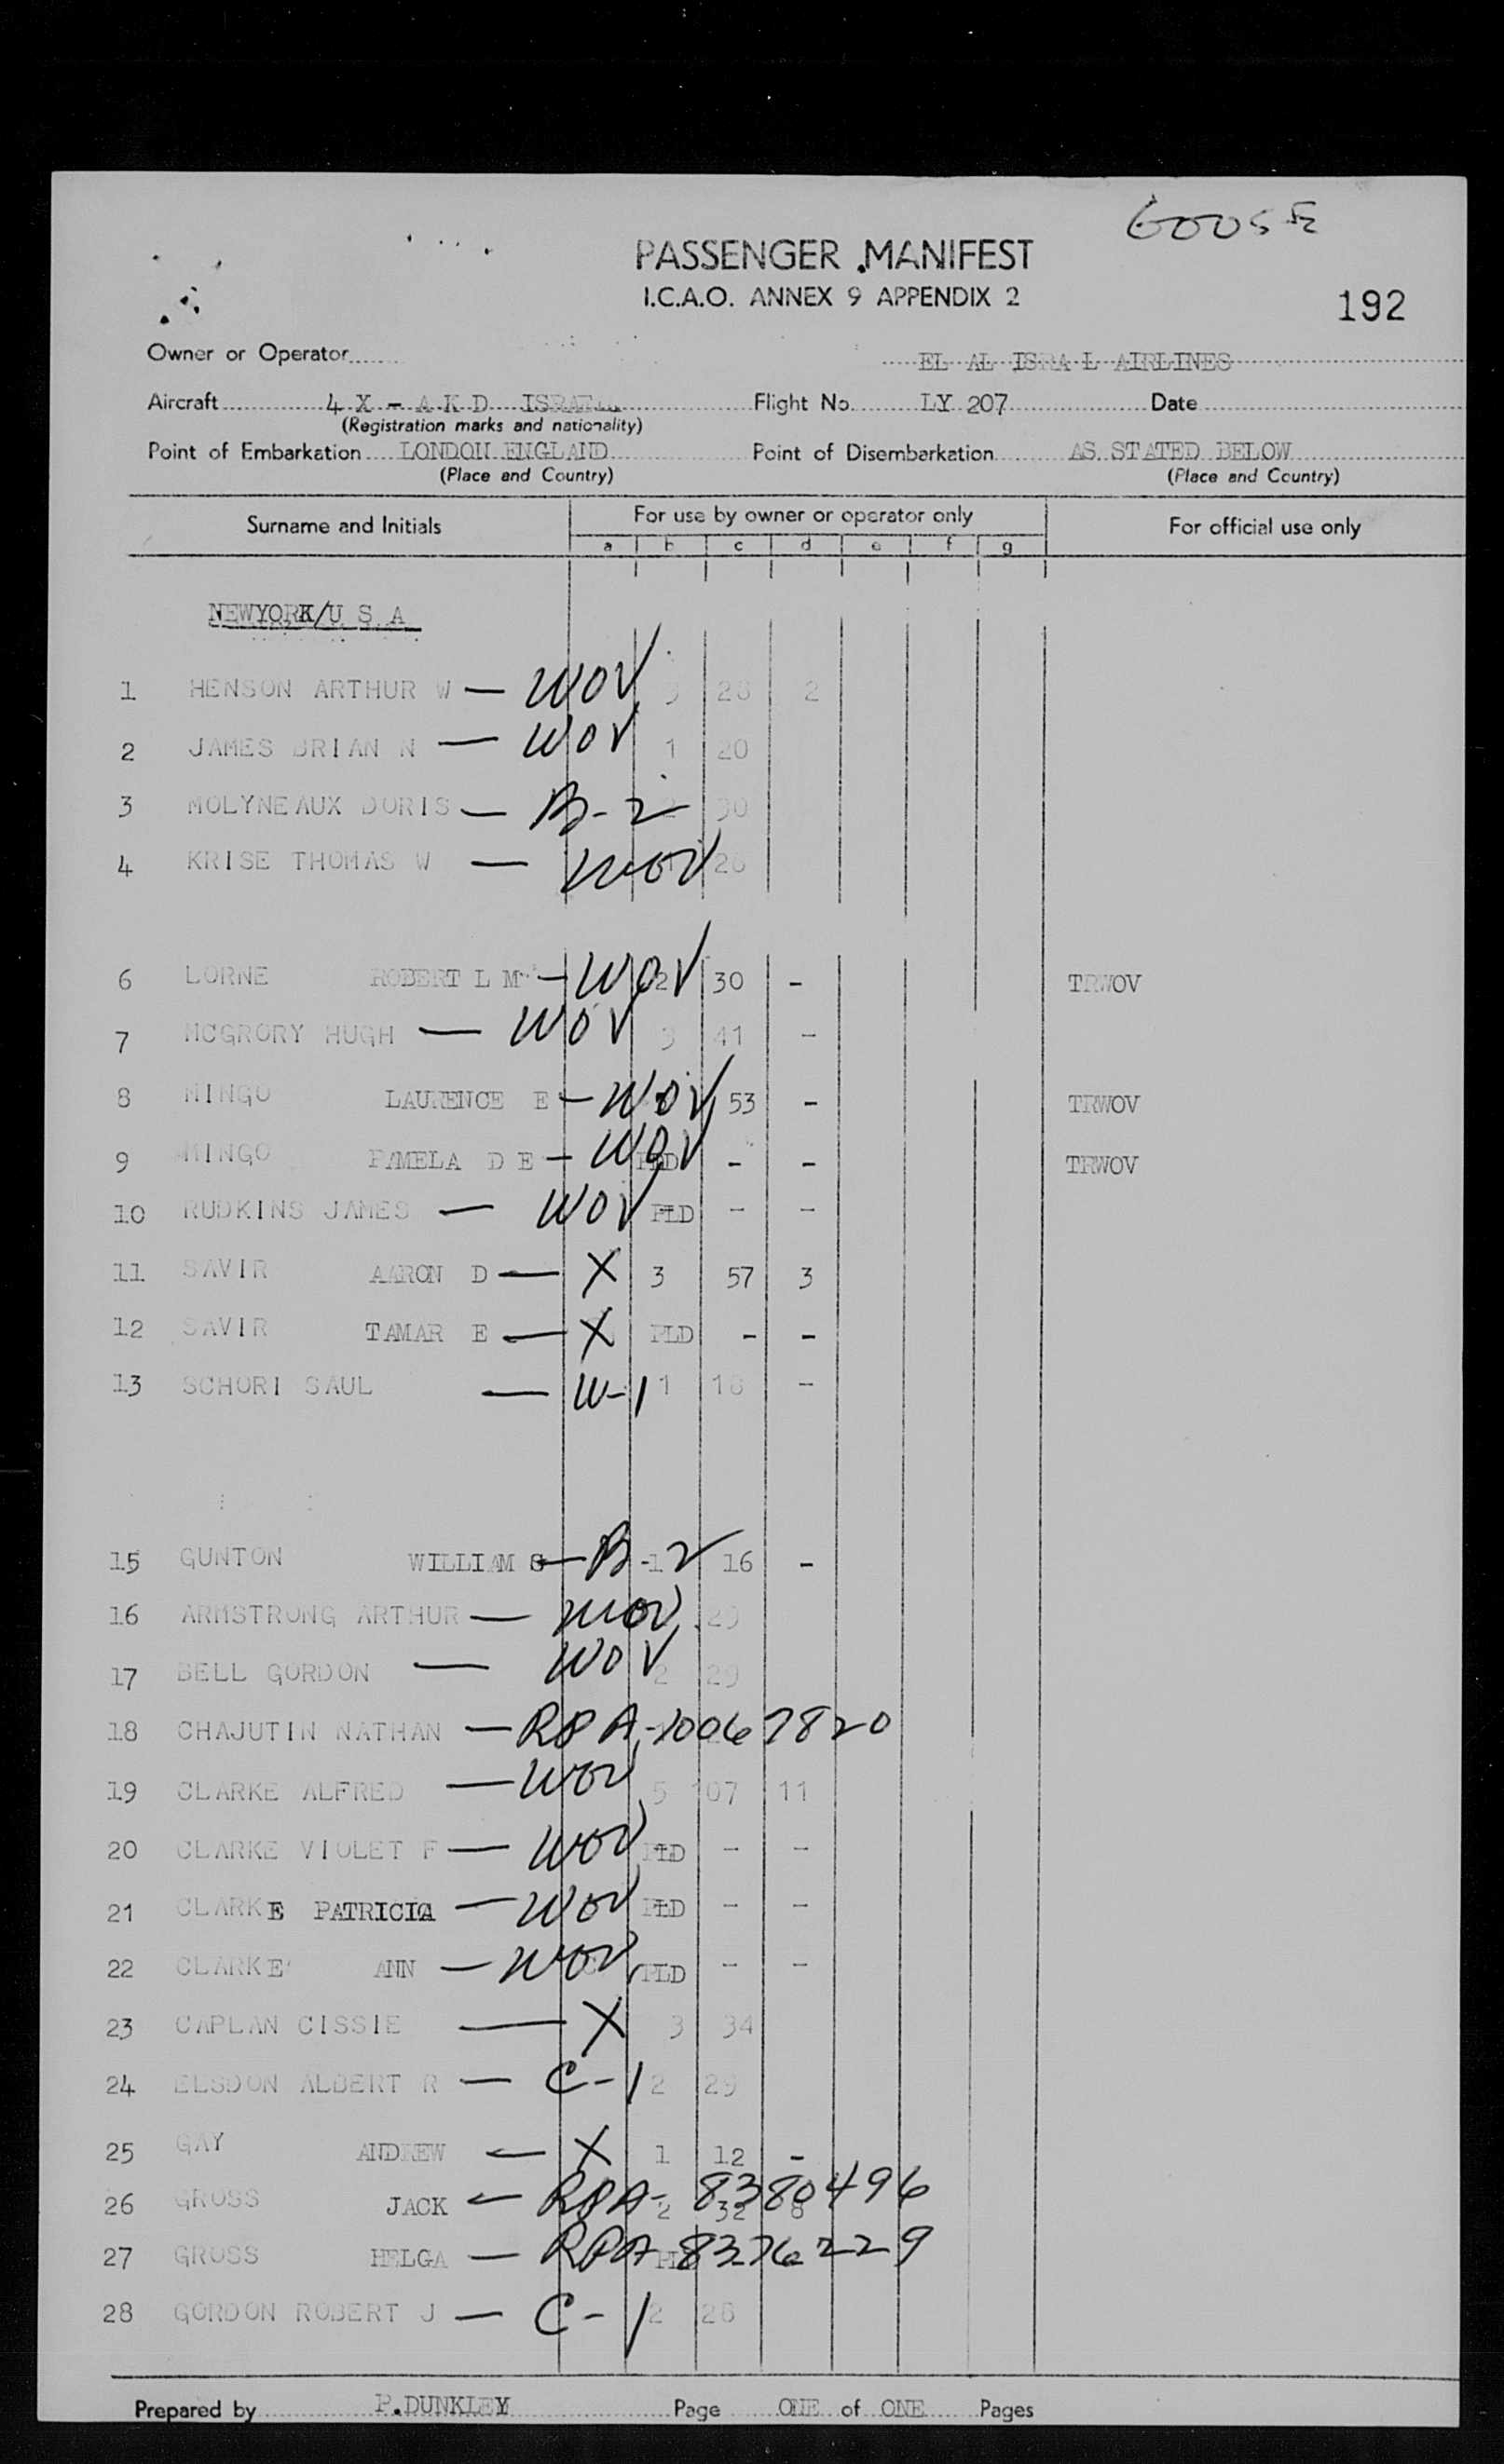 PASSENGER MANIFEST
I.C.A.O. ANNEX 9 APPENDIX 2
192
Owner or Operator EL AL ISRA L AIRLINES
Aircraft 4 X - A K D Flight No. LY 207 Date
(Registration marks and nationality)
Point of Embarkation LONDON ENGLAND Point of Disembarkation AS STATED BELOW
(Place and Country) (Place and Country)
Surname and Initials For use by owner or operator only For official use only
a b c d e f g
NEWYORK/U S A
1 HENSON ARTHUR W — WOV 28 2
2 JAMES BRIAN N — WOV 1 20
3 MOLYNEAUX DORIS — B-2 30
4 KRISE THOMAS W — WOV
6 LORNE ROBERT L M — WOV 2 30 - TRWOV
7 MCGRORY HUGH — WOV 3 41 -
8 MINGO LAURENCE E — WOV 53 - TRWOV
9 MINGO PAMELA D E — WOV PLD - - TRWOV
10 RUDKINS JAMES — WOV PLD - -
11 SAVIR AARON D — X 3 57 3
12 SAVIR TAMAR E — X PLD - -
13 SCHORI SAUL — W-1 1 18 -
15 GUNTON WILLIAM G — B-2 1 16 -
16 ARMSTRONG ARTHUR — WOV 29
17 BELL GORDON — WOV 2 29
18 CHAJUTIN NATHAN — RPA-10067820
19 CLARKE ALFRED — WOV 5 107 11
20 CLARKE VIOLET F — WOV PLD - -
21 CLARKE PATRICIA — WOV PLD - -
22 CLARKE ANN — WOV PLD - -
23 CAPLAN CISSIE — X 3 34
24 ELSDON ALBERT R — C-1 2 29
25 GAY ANDREW — X 1 12 -
26 GROSS JACK — RPA-8380496 2 32 8
27 GROSS HELGA — RPA 8376229
28 GORDON ROBERT J — C-1 2 26
Prepared by P.DUNKLEY Page ONE of ONE Pages